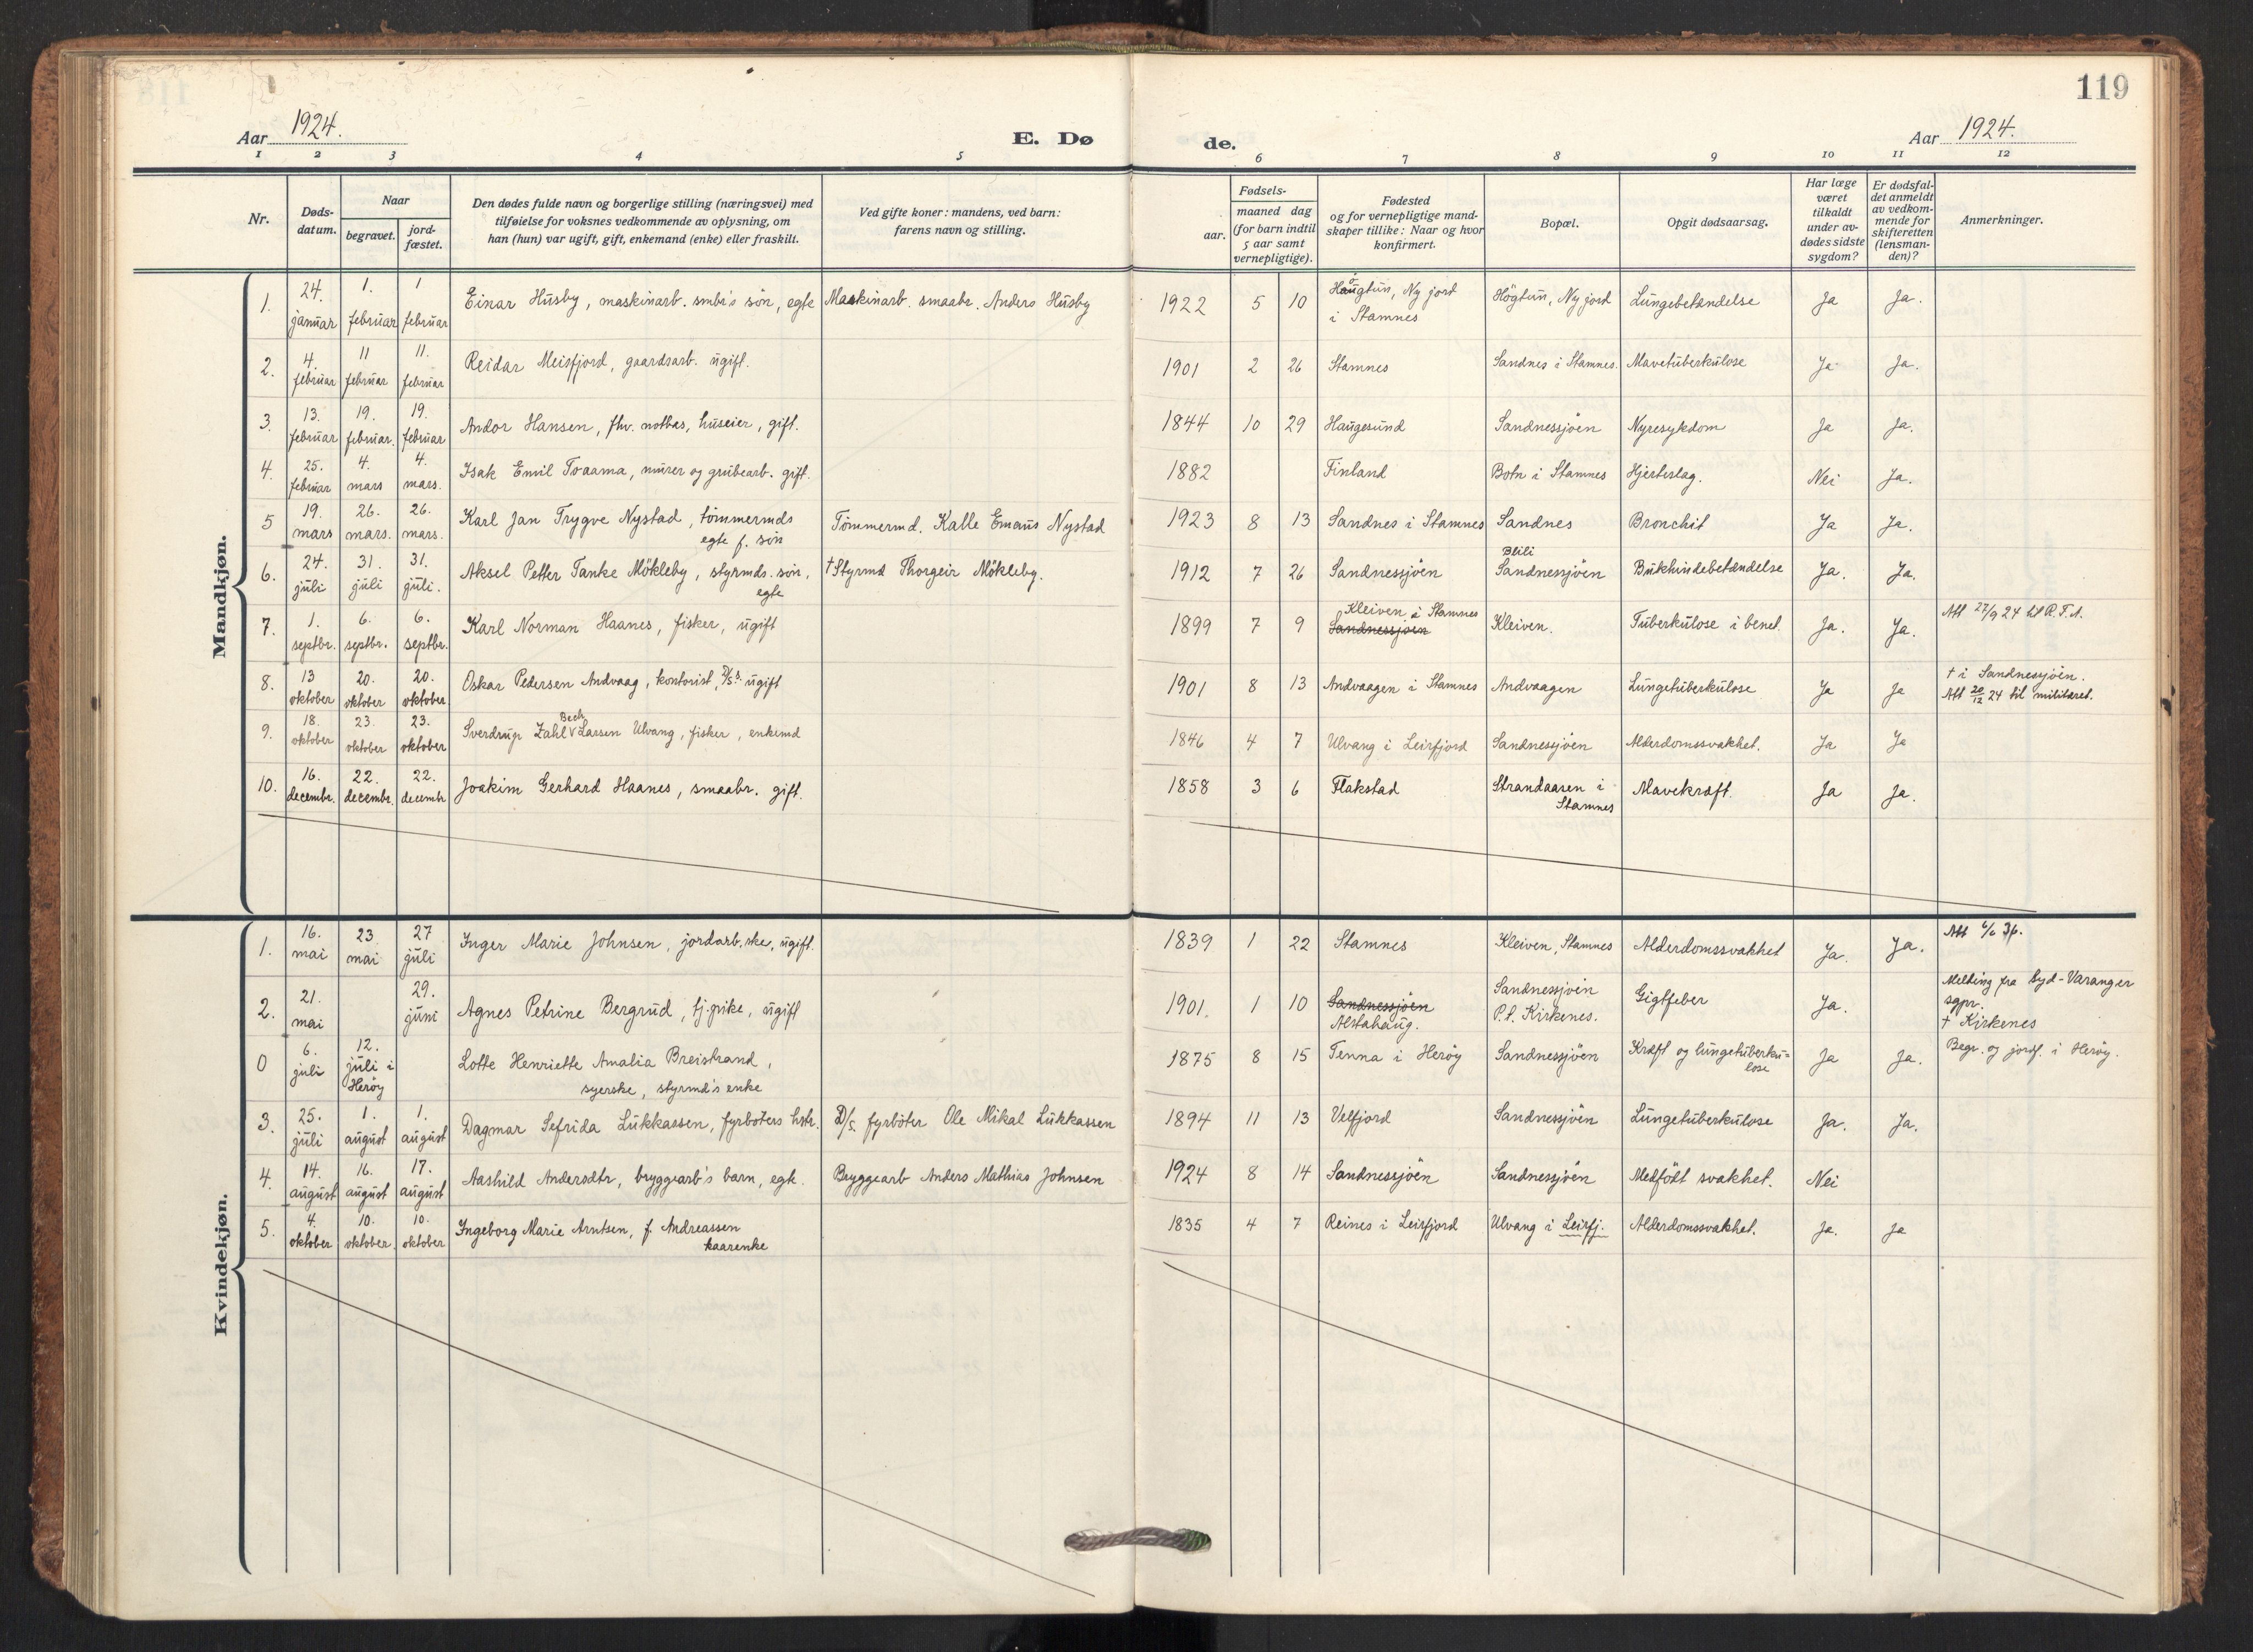 119
Aar 1924. E. Dø de. Aar 1924.
1 2 3 4 5 6 7 8 9 10 11 12
Nr. Døds-datum. Naar begravet. jord-fæstet. Den dødes fulde navn og borgerlige stilling (næringsvei) med tilføielse for voksnes vedkommende av oplysning, om han (hun) var ugift, gift, enkemand (enke) eller fraskilt. Ved gifte koner: mandens, ved barn: farens navn og stilling. Fødsels- aar. maaned dag (for barn indtil 5 aar samt vernepligtige). Fødested og for vernepligtige mand-skaper tillike: Naar og hvor konfirmert. Bopæl. Opgit dødsaarsag. Har læge været tilkaldt under av-dødes sidste sygdom? Er dødsfal-det anmeldt av vedkom-mende for skifteretten (lensman-den)? Anmerkninger.
Mandkjøn.
1. 24. januar 1. februar 1 februar Einar Husby, maskinarb. smbr's søn, egte Maskinarb. smaabr. Anders Husby 1922 5 10 Haugtun, Ny jord i Stamnes Högtun, Ny jord Lungebetændelse Ja Ja.
2. 4. februar 11 februar 11. februar Reidar Meisfjord, gaardsarb. ugift. 1901 2 26 Stamnes Sandnes i Stamnes. Mavetuberkulose Ja Ja.
3. 13. februar 19. februar. 19. februar Andor Hansen, fhv. notbas, huseier, gift. 1844 10 29 Haugesund Sandnessjöen Nyresykdom Ja Ja.
4. 25. februar 4. mars 4. mars. Isak Emil Toaama, murer og grubearb. gift. 1882 Finland Botn i Stamnes Hjerteslag. Nei Ja.
5 19. mars 26. mars. 26. mars. Karl Jan Trygve Nystad, tömmermds egte f. søn Tömmermd. Kalle Emaus Nystad 1923 8 13 Sandnes i Stamnes Sandnes Bronchit Ja Ja.
6. 24. juli 31. juli 31. juli. Aksel Petter Tanke Mökleby, styrmds. søn, egte † Styrmd Thorgeir Mökleby. 1912 7 26 Sandnessjöen Blili Sandnessjöen Bukhindebetændelse Ja. Ja.
7. 1. septbr. 6. septbr. 6. septbr. Karl Norman Haanes, fisker, ugift 1899 7 9 Kleiven i Stamnes Sandnessjöen Kleiven. Tuberkulose i benet. Ja. Ja. Att 27/9 24 til R.T.v.
8. 13 oktober 20. oktober 20. oktober Oskar Pedersen Andvaag, kontorist, ugift 1901 8 13 Andvaagen i Stamnes Andvaagen Lungetuberkulose Ja Ja † i Sandnessjöen. Att 20/12 24 til militæret.
9. 18. oktober 23. oktober 23. oktober Sverdrup Zahl Bech Larsen Ulvang, fisker, enkemd 1846 4 7 Ulvang i Leirfjord Sandnessjöen Alderdomssvakhet. Ja Ja
10. 16. decembr. 22. decembr. 22. decembr Joakim Gerhard Haanes, smaabr. gift. 1858 3 6 Flakstad Strandaasen i Stamnes Mavekræft. Ja Ja.
Kvindekjøn.
1. 16. mai 23 mai 27 juli Inger Marie Johnsen, jordarb.ske, ugift. 1839 1 22 Stamnes Kleiven, Stamnes Alderdomssvakhet Ja. Ja. Att 6/6 36.
2. 21. mai 29. juni Agnes Petrine Bergrud, tj.pike, ugift 1901. 1 10 Sandnessjöen Alstahaug. Sandnessjöen P.t. Kirkenes. Gigtfeber Ja. Melding fra Syd-Varanger sgpr. † Kirkenes
0 6. juli 12. juli i Heröy Lotte Henriette Amalia Breistrand, syerske, styrmd's enke 1875 8 15 Tenna i Heröy Sandnessjöen Kræft og lungetuberku=lose Ja Ja. Begr. og jordf. i Heröy.
3. 25. juli 1. august 1. august Dagmar Sefrida Lukkassen, fyrböters hstr. D/s. fyrböter Ole Mikal Lukkassen 1894 11 13 Velfjord Sandnessjöen Lungetuberkulose Ja. Ja.
4. 14. august 16. august 17. august Aashild Andersdtr, bryggearb's barn, egte. Bryggearb Anders Mathias Johnsen 1924 8 14 Sandnessjöen Sandnessjöen Medfödt svakhet. Nei
5. 4. oktober 10. oktober. 10. oktober Ingeborg Marie Arntsen, f. Andreassen kaarenke 1835 4 7 Reines i Leirfjord Ulvang i Leirfj. Alderdomssvakhet. Ja. Ja